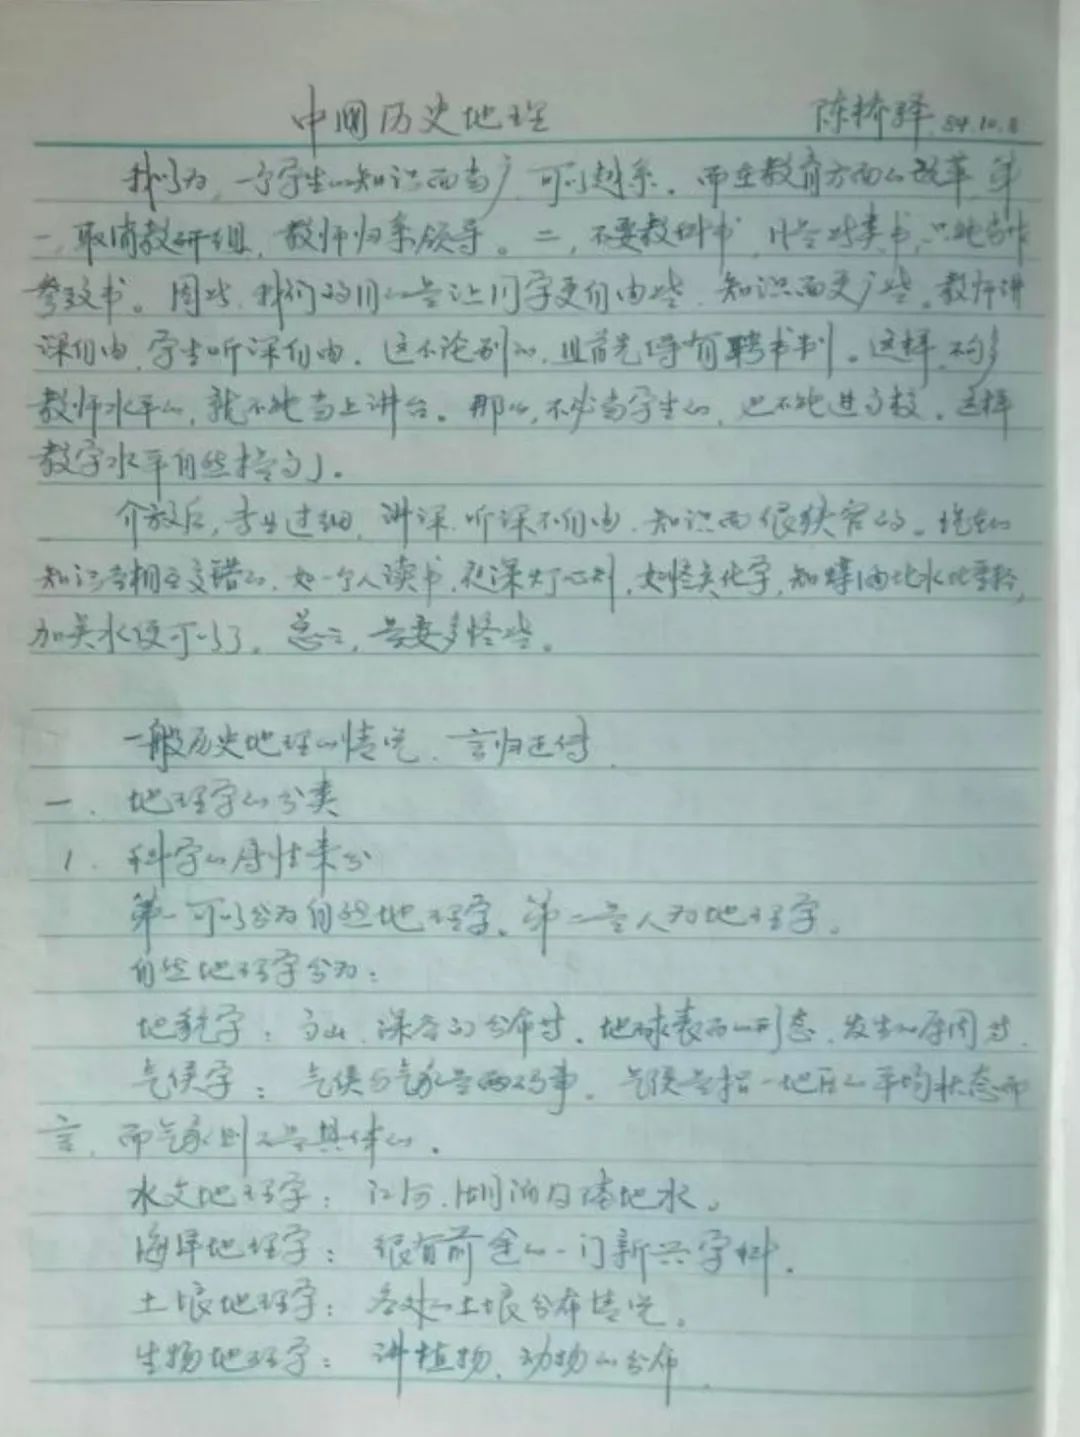 中国历史地理 陈桥驿 84.10.8
我以为,一个学生的知识面当广,可以越系。而在教育方面的改革,第
一,取消教研组,教师归系领导。二,不要教科书,凡是此类书,只能当作
参考书。因此,我们的目的是让同学更自由些,知识面更广些。教师讲
课自由,学生听课自由,这不论别的,且首先得有聘书制。这样,不够
教师水平的,就不能当上讲台。那么,不必当学生的,也不能进高校,这样
教学水平自然提高了。
介放后,专业过细,讲课、听课不自由,知识面很狭窄的。现在的
知识是相互交错的,如一个人读书,夜深灯心,如懂点化学,知煤油比水比重轻,
加点水便可以了。总之,是要多懂些。
一般历史地理的情况,言归正传
一、地理学的分类
1. 科学的属性来分
第一可以分为自然地理学。第二是人为地理学。
自然地理学分为:
地貌学:高山、深谷的分布等,地球表面的形态、发生的原因等
气候学:气候与气象是两码事,气候是指一地区的平均状态而
言,而气象则是具体的。
水文地理学:江河、湖泊及陆地水。
海洋地理学:很有前途的一门新兴学科。
土壤地理学:各处的土壤分布情况。
生物地理学:讲植物、动物的分布